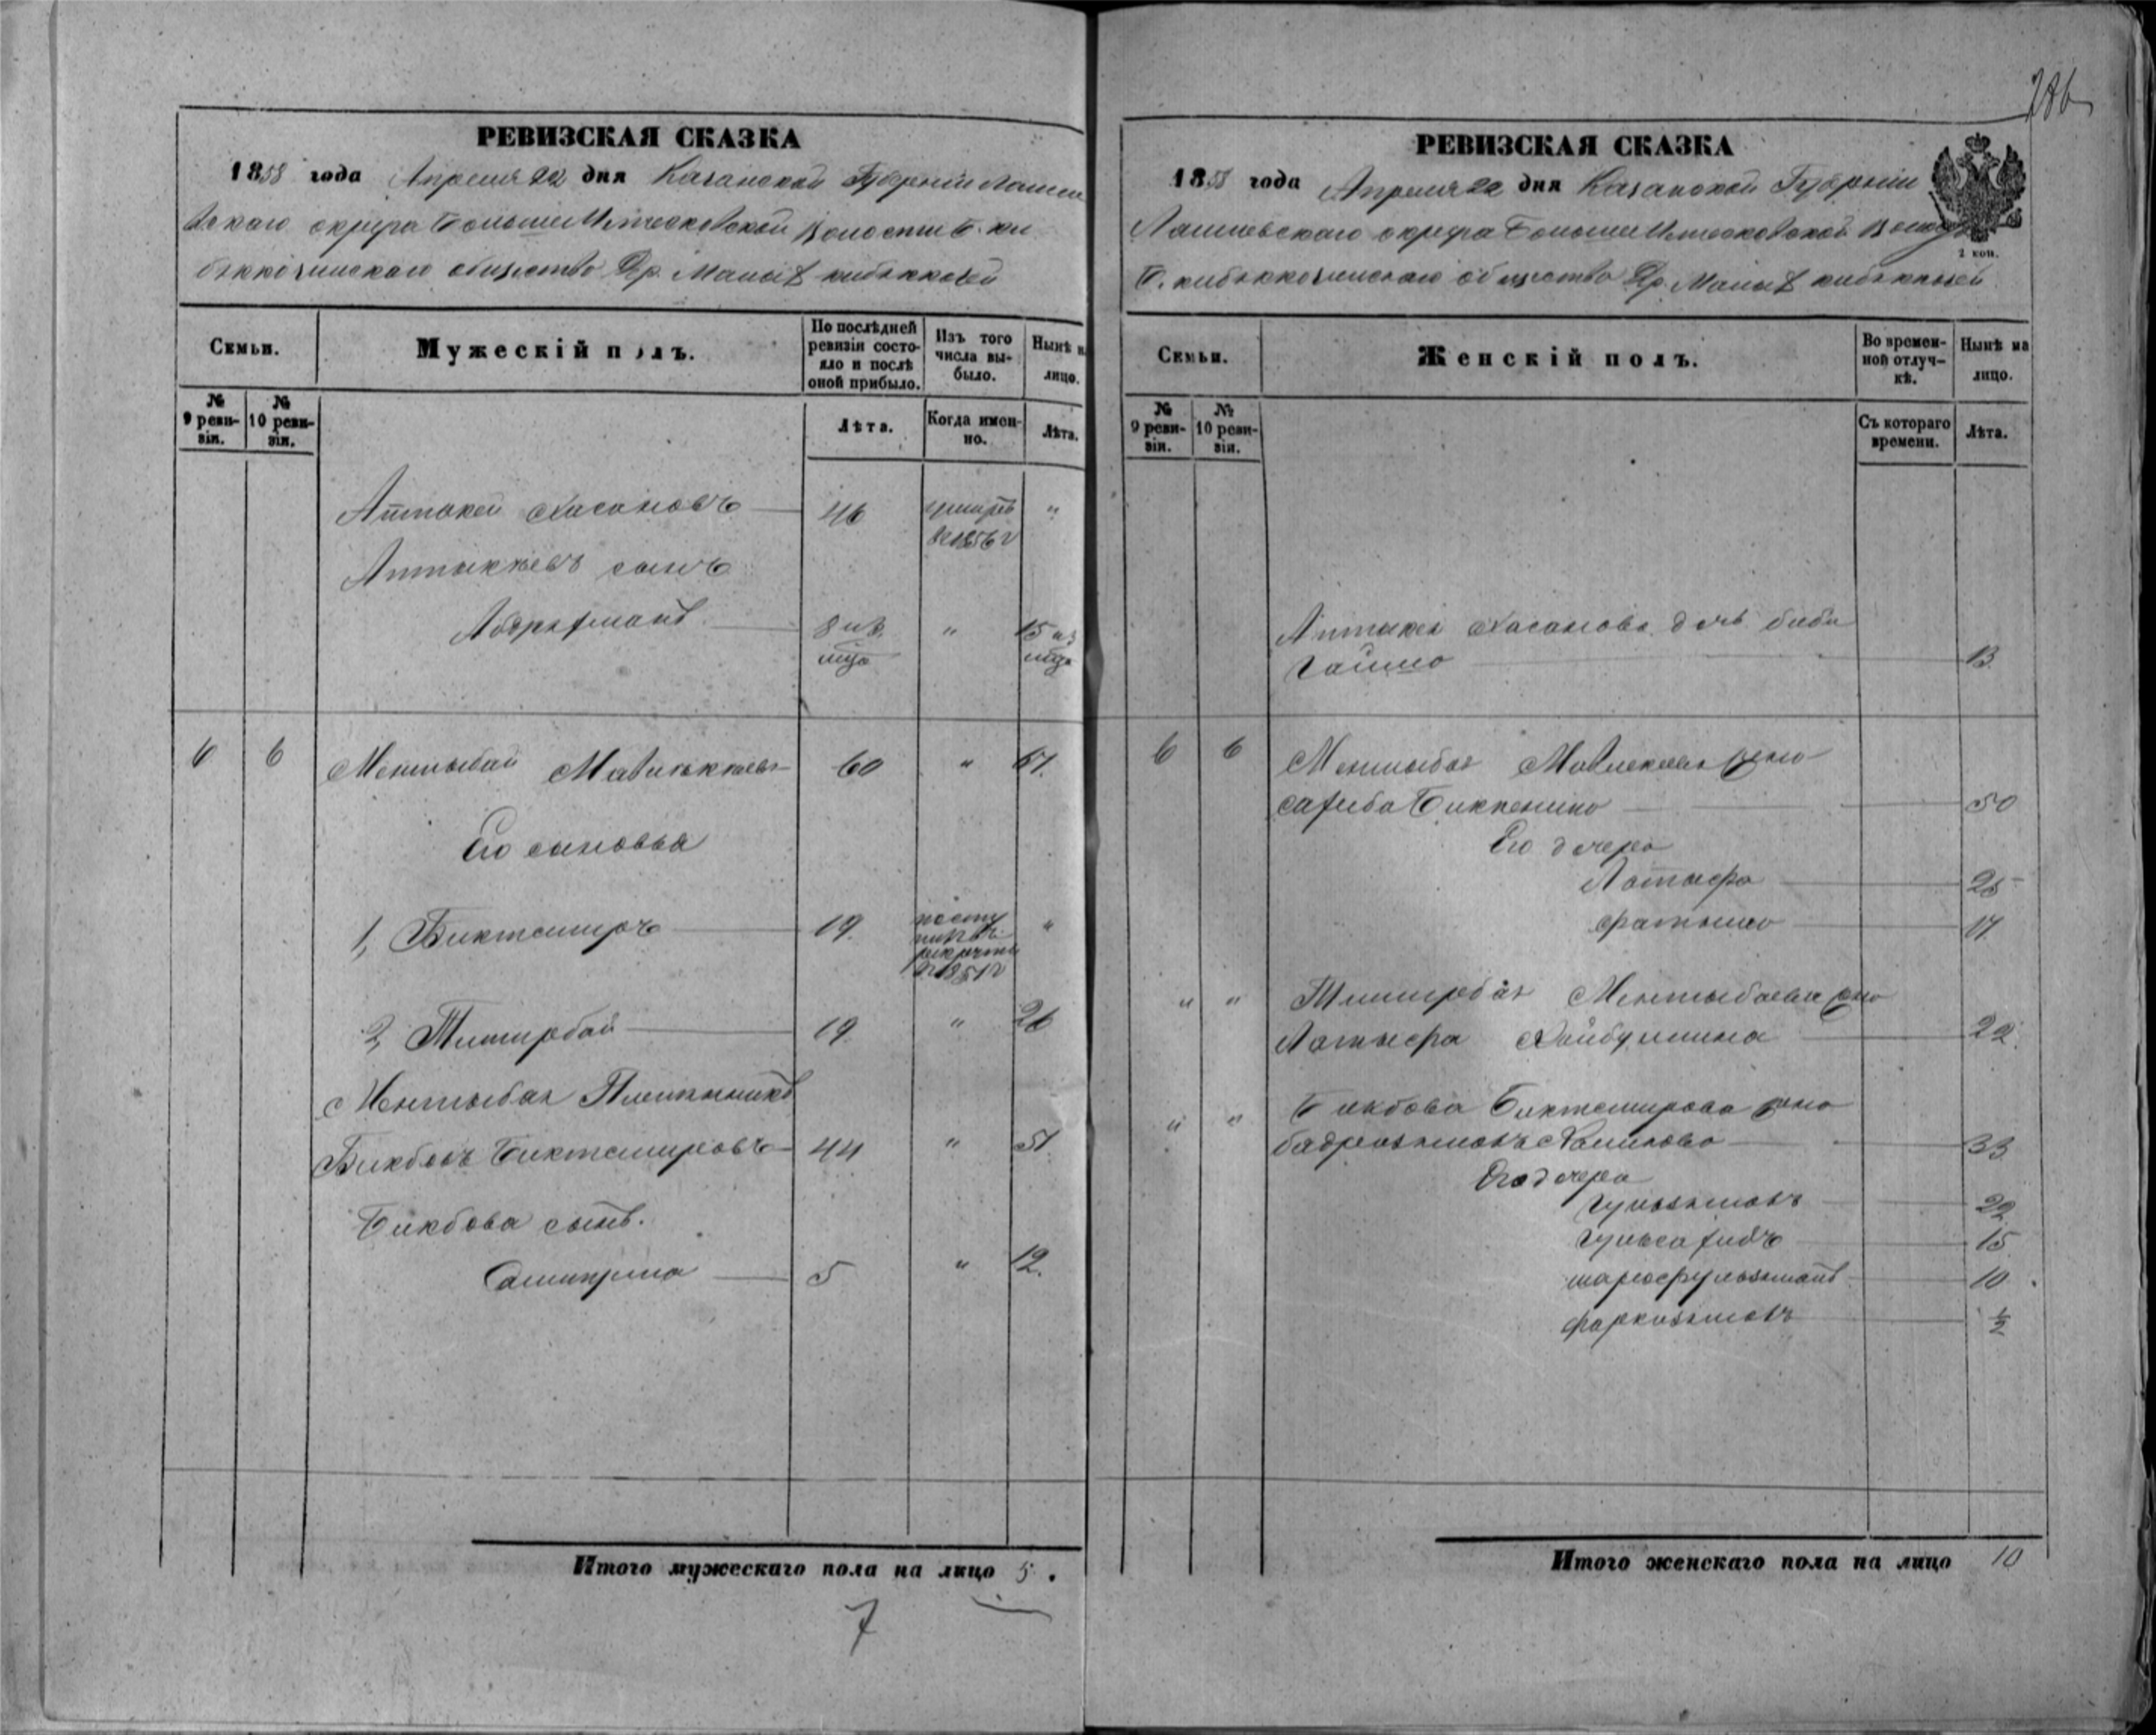 286
РЕВИЗСКАЯ СКАЗКА
1858 года Апреля 22 дня Казанской Губернiи Лаише
вскаго округа Больше Волости Б. ки
бяккозинскаго общества Др. Малыхъ кибяккозей
Семьи.
Мужескiй полъ.
По послѣдней ревизiи состояло и послѣ оной прибыло.
Изъ того числа выбыло.
Нынѣ на лицо.
№ 9 ревизiи.
№ 10 ревизiи.
Лѣта.
Когда именно.
Лѣта.
Аптыкей Хасановъ 46 умеръ "
въ 1856 г
Аптыкѣевъ сынъ
Абдрахманъ 8 " 15
6 6 Ментыбай 60 " 67.
Его сыновья
1, Биктемиръ 19. посту "
рекруты
въ 1851 г
2, Тимирбай 19 " 26
Ментыбая Племянникъ
Бикбовъ Биктемировъ 44 " 51.
Бикбова сынъ.
5 " 12.
Итого мужескаго пола на лицо 5.
7
РЕВИЗСКАЯ СКАЗКА
1858 года Апреля 22 дня Казанской Губернiи
Лаишевскаго округа Больше Волости
Б. кибяккозинскаго общества Др. Малыхъ кибяккозей
2 коп.
Семьи.
Женскiй полъ.
Во временной отлучкѣ.
Нынѣ на лицо.
№ 9 ревизiи.
№ 10 ревизiи.
Съ котораго времени.
Лѣта.
Аптыкея Хасанова дочь биби
гайша 13.
6 6 Ментыбая жена
сахиба Биккенина 50
Его дочери
Латыфа 25
фатыма 17.
" " Тимирбая Ментыбаева жена
Латыфа Хайбуллина 22.
" " Бикбова Биктемирова жена
33
Его дочери
22
15
10
1/2
Итого женскаго пола на лицо 10